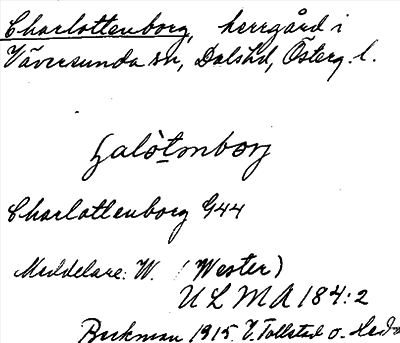 Charlottenborg, herrgård i
Väversunda sn, Dals hd, Österg. l.
Charlottenborg G44
Meddelare: W. (Wester)
ULMA 184:2
Beckman 1915. V. Tollstad o. Heda